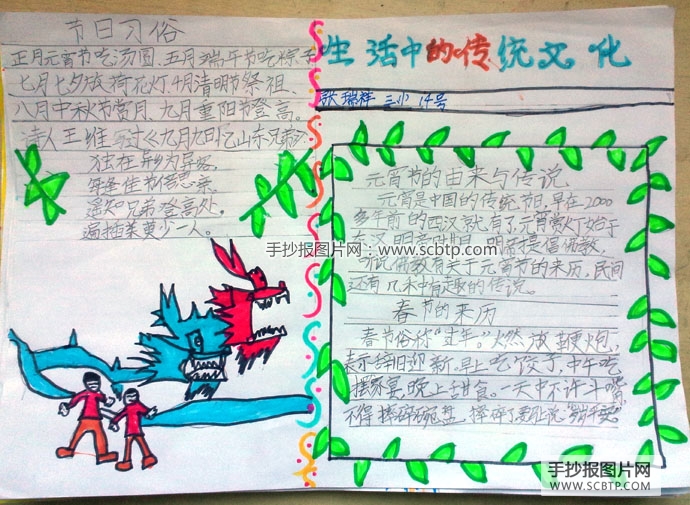 节日习俗
正月元宵节吃汤圆、五月端午节吃粽子
七月七夕放荷花灯、4月清明节祭祖、
八月中秋节赏月、九月重阳节登高。
诗人王维 写过《九月九日忆山东兄弟》
独在异乡为异客,
每逢佳节倍思亲。
遥知兄弟登高处,
遍插茱萸少一人。
生活中的传统文化
张瑞祥 三小 14号
元宵节的由来与传说
元宵是中国的传统节日,早在2000
多年前的西汉就有了,元宵赏灯始于
东汉明帝时期,明帝提倡佛教,
听说佛教有关于元宵节的来历,民间
还有几米中有趣的传说。
春节的来历
春节俗称“过年。”燃放鞭炮,
表示辞旧迎新。早上吃饺子,中午吃
摆家宴,晚上甜食。一天中不许斗嘴
不得摔碎碗盘,摔碎了要说
手抄报图片网:www.scbtp.com
手抄报图片网
WWW.SCBTP.COM